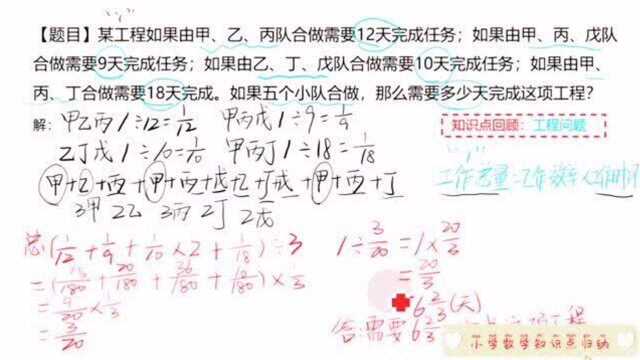 【题目】某工程如果由甲、乙、丙队合做需要12天完成任务；如果由甲、丙、戊队
合做需要9天完成任务；如果由乙、丁、戊队合做需要10天完成任务；如果由甲、
丙、丁合做需要18天完成。如果五个小队合做，那么需要多少天完成这项工程？
解：甲乙丙1÷12=1/12 甲丙戊1÷9=1/9
知识点回顾：工程问题
乙丁戊1÷10=1/10 甲丙丁1÷18=1/18
"1"
工作总量=工作效率×工作时间
甲+乙+丙+甲+丙+戊+乙+丁+戊+甲+丙+丁
3甲 2乙 3丙 2丁 2戊
总(1/12+1/9+1/10×2+1/18)÷3
=(15/180+20/180+36/180+10/180)×1/3
=9/20×1/3
=3/20
1÷3/20=1×20/3
=20/3
=6 2/3(天)
答:需要6 2/3
小学数学知识点归纳